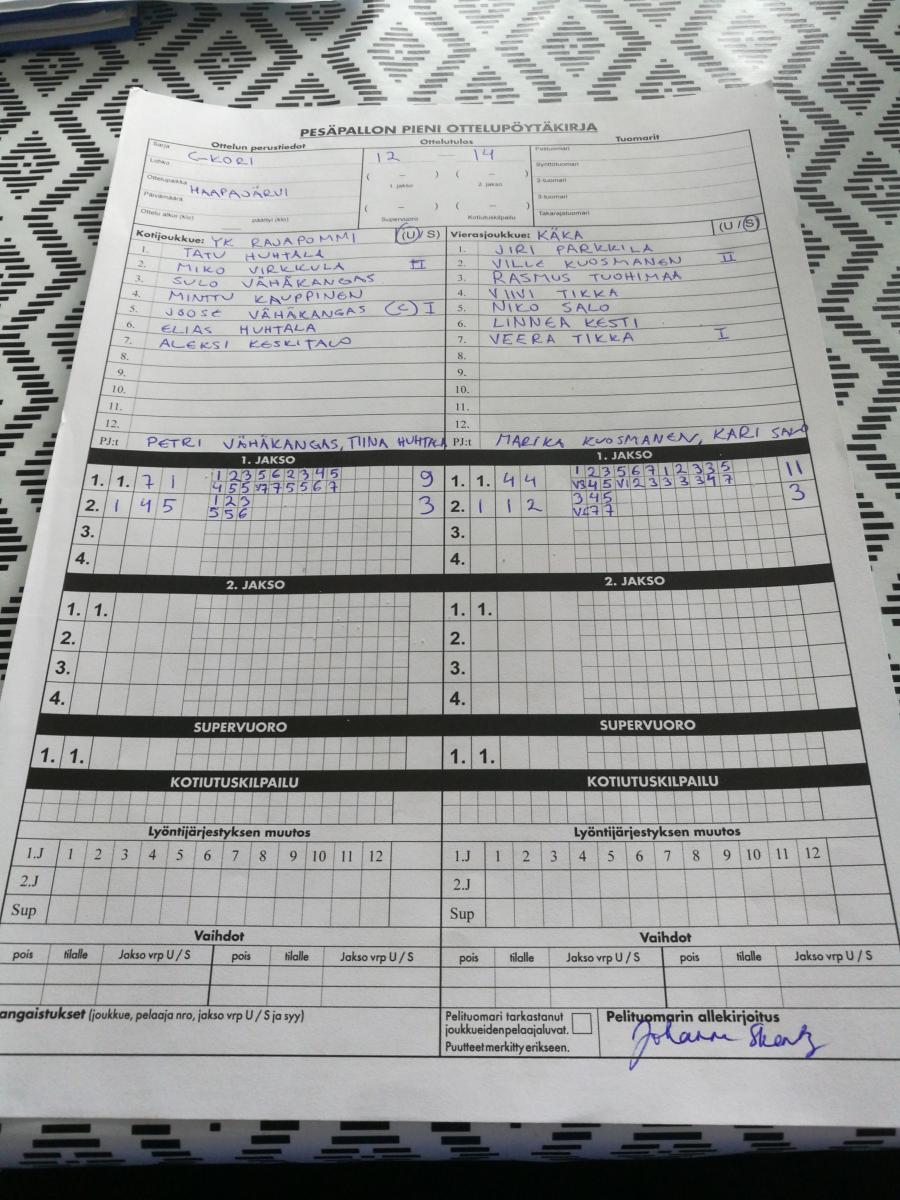 PESÄPALLON PIENI OTTELUPÖYTÄKIRJA
Ottelun perustiedot Ottelutulos Tuomarit
Sarja C-KORI 12 — 14 Pelituomari
Lohko ( – ) ( – ) Syöttötuomari
Ottelupaikka HAAPAJÄRVI 1. jakso 2. jakso 2-tuomari
Päivämäärä ( – ) ( – ) 3-tuomari
Ottelu alkoi (klo) päättyi (klo) Supervuoro Kotiutuskilpailu Takarajatuomari
Kotijoukkue: YK RAJAPOMMI (U/S) Vierasjoukkue: KÄKA (U/S)
1. TATU HUHTALA 1. JIRI PARKKILA
2. MIKO VIRKKULA II 2. VILLE KUOSMANEN II
3. SULO VÄHÄKANGAS 3. RASMUS TUOHIMAA
4. MINTTU KAUPPINEN 4. VIIVI TIKKA
5. JOOSE VÄHÄKANGAS (C) I 5. NIKO SALO
6. ELIAS HUHTALA 6. LINNEA KESTI
7. ALEKSI KESKITALO 7. VEERA TIKKA I
8. 8.
9. 9.
10. 10.
11. 11.
12. 12.
PJ:t PETRI VÄHÄKANGAS, TIINA HUHTALA PJ:t MARIKA KUOSMANEN, KARI SALO
1. JAKSO 1. JAKSO
1. 1. 7 1 1 2 3 5 6 2 3 4 5 9 1. 1. 4 4 1 2 3 5 6 7 1 2 3 3 5 11
4 5 5 V7 7 5 5 6 7 V3 4 5 V1 2 3 3 3 3 4 7
2. 1 4 5 1 2 3 3 2. 1 1 2 3 4 5 3
5 5 6 7 7
3. 3.
4. 4.
2. JAKSO 2. JAKSO
1. 1. 1. 1.
2. 2.
3. 3.
4. 4.
SUPERVUORO SUPERVUORO
1. 1. 1. 1.
KOTIUTUSKILPAILU KOTIUTUSKILPAILU
Lyöntijärjestyksen muutos Lyöntijärjestyksen muutos
1.J 1 2 3 4 5 6 7 8 9 10 11 12 1.J 1 2 3 4 5 6 7 8 9 10 11 12
2.J 2.J
Sup Sup
Vaihdot Vaihdot
pois tilalle Jakso vrp U / S pois tilalle Jakso vrp U / S pois tilalle Jakso vrp U / S pois tilalle Jakso vrp U / S
angaistukset (joukkue, pelaaja nro, jakso vrp U / S ja syy) Pelituomari tarkastanut Pelituomarin allekirjoitus
joukkueiden pelaajaluvat.
Puutteet merkitty erikseen.